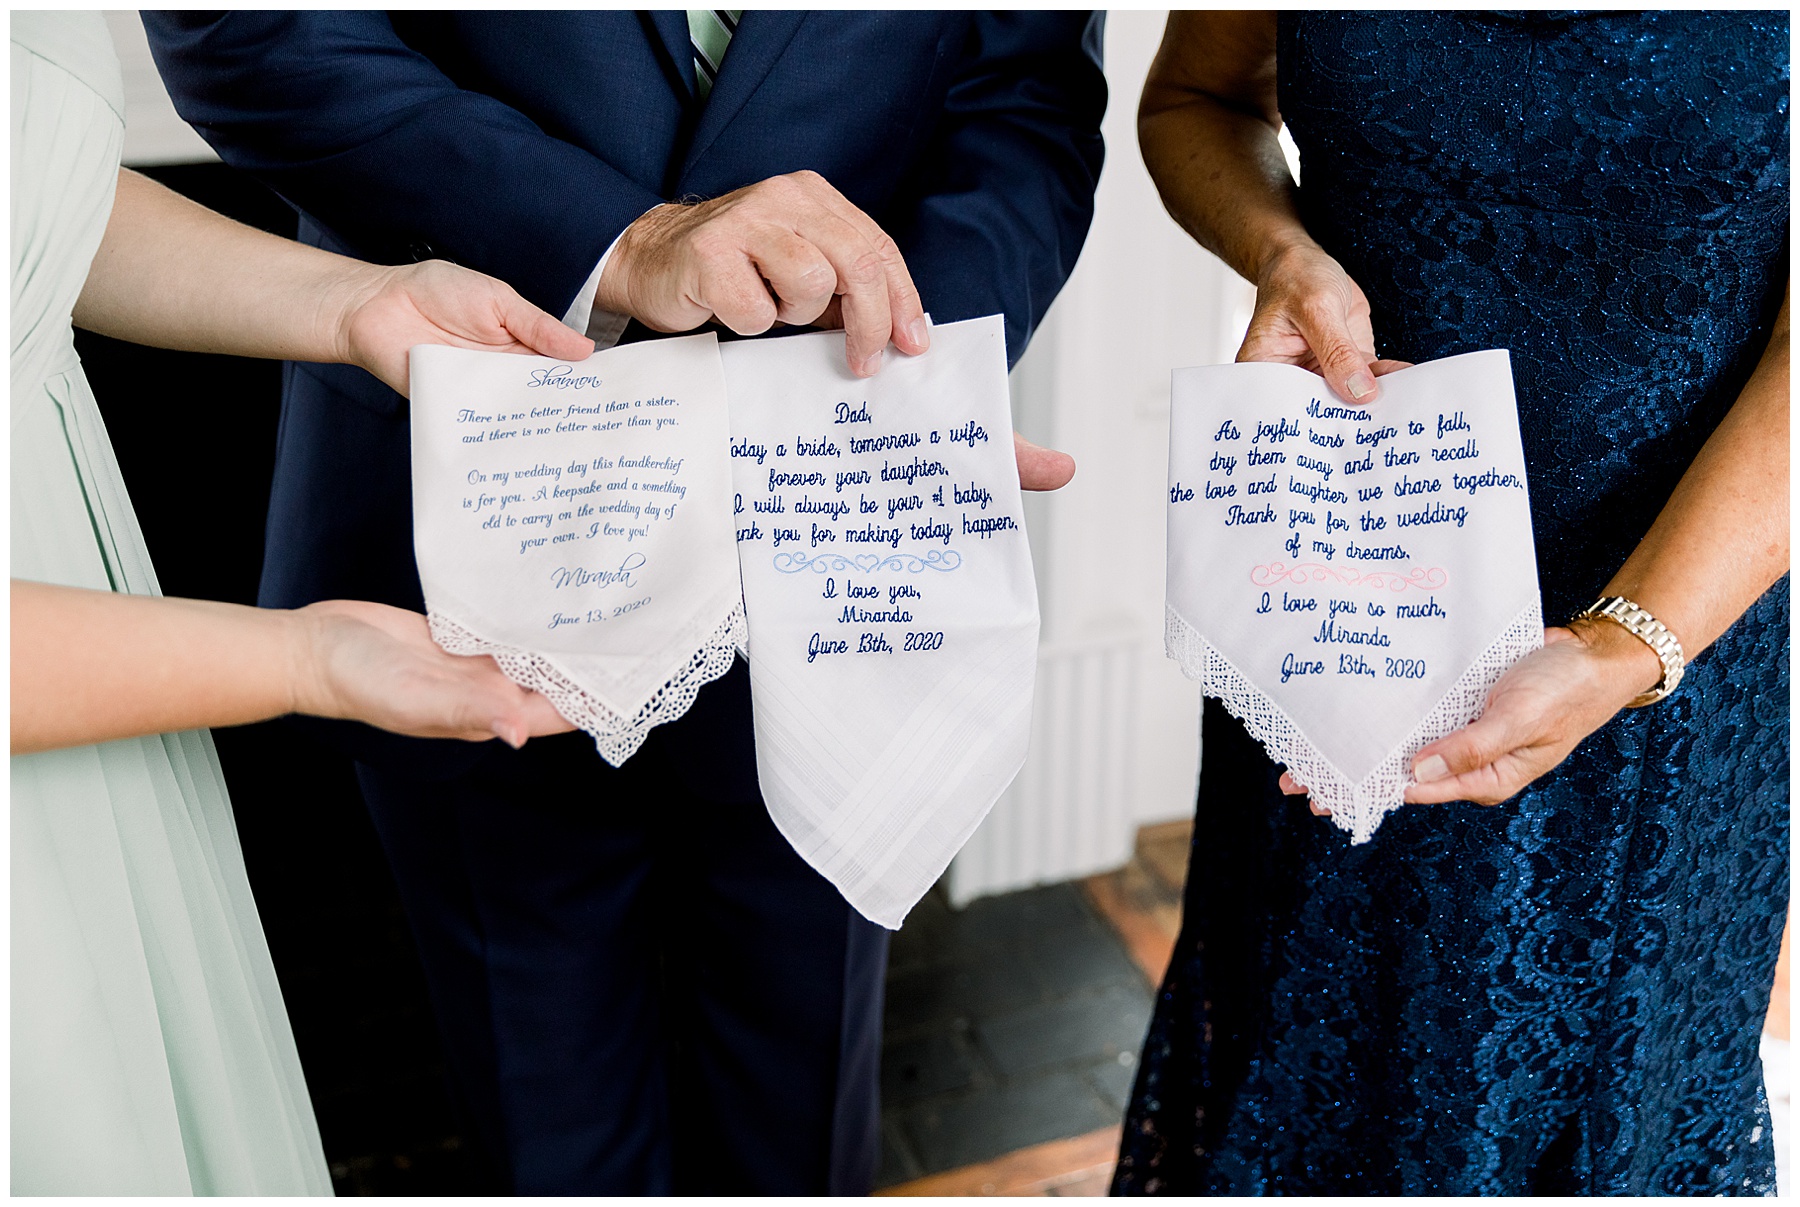 Shannon,
There is no better friend than a sister,
and there is no better sister than you.
On my wedding day this handkerchief
is for you. A keepsake and a something
old to carry on the wedding day of
your own. I love you!
Miranda
June 13, 2020
Dad,
oday a bride, tomorrow a wife,
forever your daughter.
I will always be your #1 baby.
nk you for making today happen.
I love you,
Miranda
June 13th, 2020
Momma,
As joyful tears begin to fall,
dry them away and then recall
the love and laughter we share together.
Thank you for the wedding
of my dreams.
I love you so much,
Miranda
June 13th, 2020